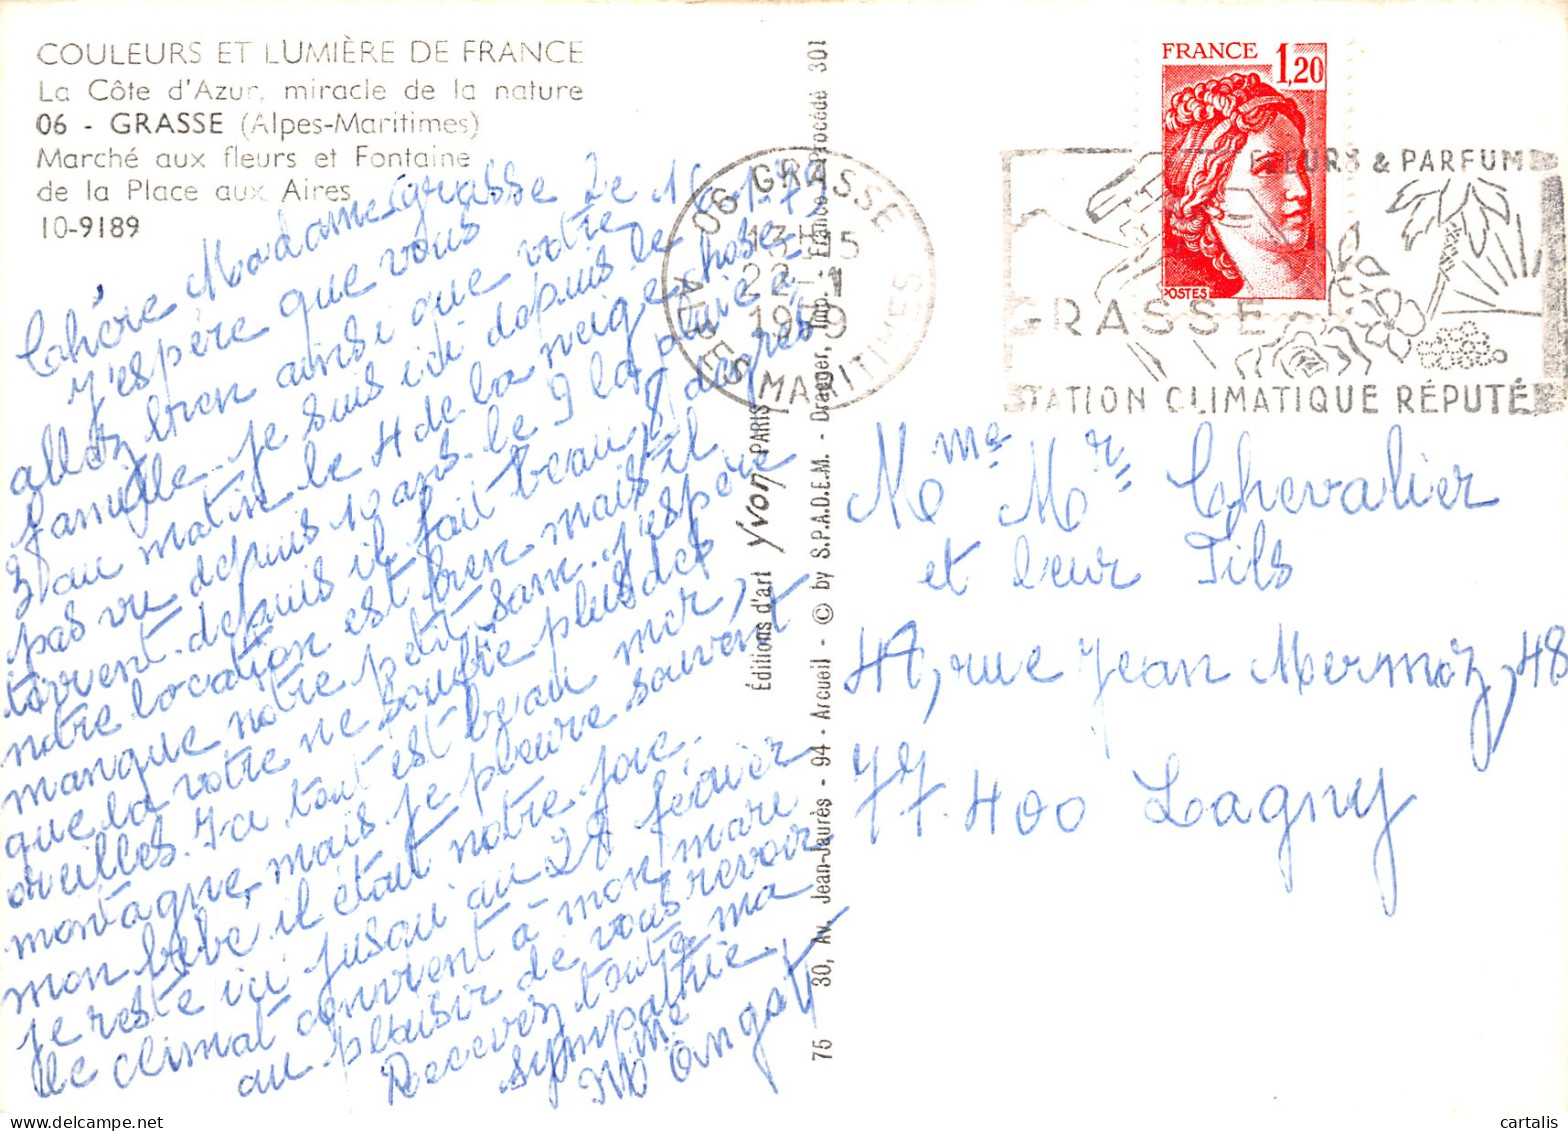 COULEURS ET LUMIÈRE DE FRANCE
La Côte d'Azur, miracle de la nature
06 - GRASSE (Alpes-Maritimes)
Marché aux fleurs et Fontaine
de la Place aux Aires
10-9189
Grasse Le
Chère Madame
J'espère que vous
allez bien ainsi que votre
famille. je suis ici depuis le
3 au matin le 4 de la neige chose
pas vu depuis 10 ans. le 9 la pluie à
torrent. depuis il fait beau 8 degrés
notre location est bien mais il
manque notre petit Sam. j'espère
que la votre ne souffre plus des
oreilles. Ici tout est beau mer,
montagne, mais je pleure souvent
mon bébé il était notre joie.
je reste ici jusqu'au 28 février
le climat convient à mon mari
au plaisir de vous revoir
Recevez toute ma
sympathie
Mme
Éditions d'art Yvon PARIS
75 30, Av. Jean-Jaurès - 94 - Arcueil - © by S.P.A.D.E.M. - Draeger, Imp. - France - Procédé 301
06 GRASSE
13H15
22-1
1979
ALPES MARITIMES
FRANCE 1,20
POSTES
FLEURS & PARFUMS
GRASSE
STATION CLIMATIQUE RÉPUTÉE
Mme Mr Chevalier
et leur Fils
rue Jean Mermoz, 48
77.400 Lagny
cartalis